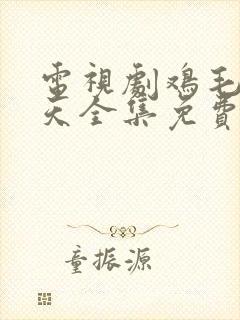 電視劇鸡毛
天全集免費
童振源